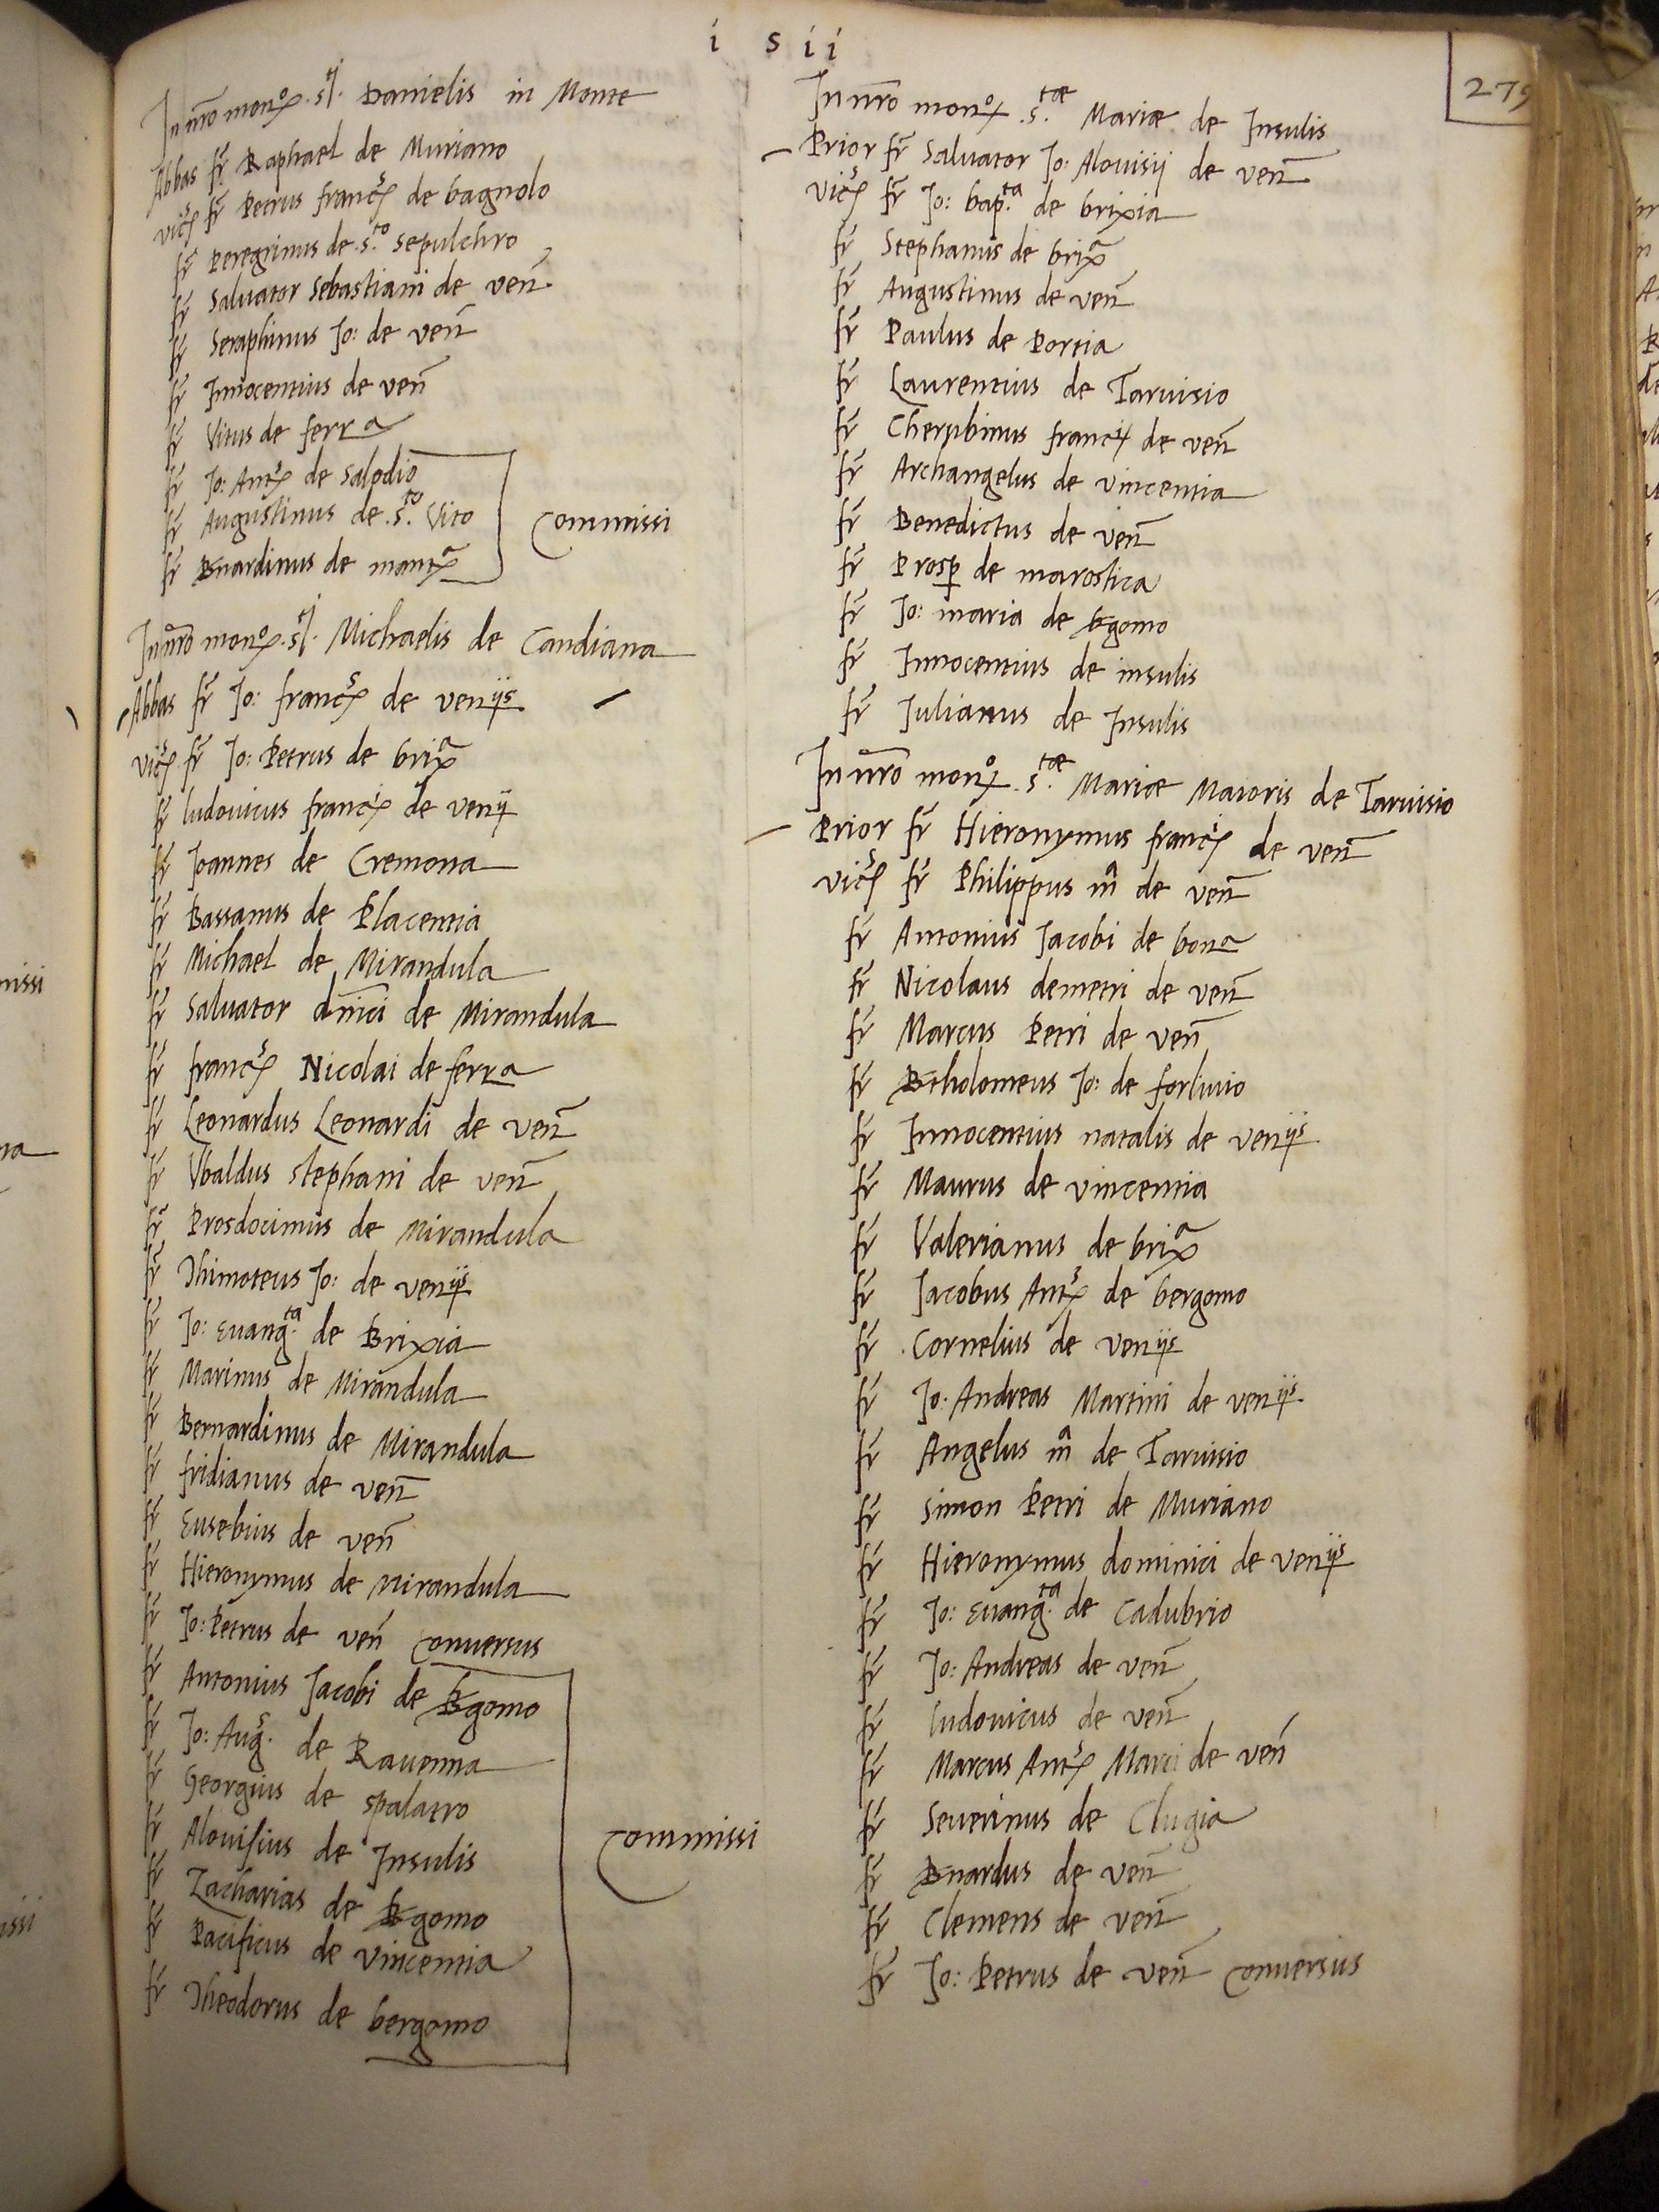 i s i i
279
In nr̃o monox̊ .sti. Danielis in Monte
Abbas fr̃ Raphael de Muriano
vics fr̃ Petrus francs de bagnolo
fr̃ Peregrinus de .s.to sepulchro
fr̃ Saluator Sebastiani de veñ
fr̃ Seraphinus Jo: de veñ
fr̃ Innocentius de veñ
fr̃ Vitus de ferra
fr̃ Jo: Ants de Salodio
fr̃ Augustinus de .s.to Vito
fr̃ Bnardinus de manta
Commissi
In nr̃o monox̊ .sti. Michaelis de Candiana
Abbas fr̃ Jo: francs de venijs
vics fr̃ Jo: Petrus de brixa
fr̃ ludouicus franci de venij
fr̃ Joannes de Cremona
fr̃ Bassanus de Placentia
fr̃ Michael de Mirandula
fr̃ Saluator dnĩci de Mirandula
fr̃ francs Nicolai de ferra
fr̃ Leonardus Leonardi de veñ
fr̃ Vbaldus stephani de veñ
fr̃ Prosdocimus de Mirandula
fr̃ Thimoteus Jo: de venijs
fr̃ Jo: Euang.ta de Brixia
fr̃ Marinus de Mirandula
fr̃ Bernardinus de Mirandula
fr̃ fridianus de veñ
fr̃ Eusebius de veñ
fr̃ Hieronymus de Mirandula
fr̃ Jo: Petrus de veñ conuersus
fr̃ Antonius Jacobi de Bgomo
fr̃ Jo: Augs. de Rauenna
fr̃ Georgius de spalatro
fr̃ Alouisius de Insulis
fr̃ Zacharias de Bgomo
fr̃ Pacificus de Vincentia
fr̃ Theodorus de bergomo
Commissi
In nr̃o monox̊ .s.tæ Mariæ de Insulis
Prior fr̃ Saluator Jo: Alouisij de veñ
vics fr̃ Jo: bap.ta de brixia
fr̃ Stephanus de brixa
fr̃ Augustinus de veñ
fr̃ Paulus de Portia
fr̃ Laurentius de Taruisio
fr̃ Cherubinus franci de veñ
fr̃ Archangelus de vincentia
fr̃ Benedictus de veñ
fr̃ Prosꝑ de marostica
fr̃ Jo: maria de bgomo
fr̃ Innocentius de insulis
fr̃ Julianus de Insulis
In nr̃o monox̊ .s.tæ Mariæ Maioris de Taruisio
Prior fr̃ Hieronymus franci de veñ
vics fr̃ Philippus m̃ de veñ
fr̃ Antonius Jacobi de bona
fr̃ Nicolaus demetri de veñ
fr̃ Marcus Petri de veñ
fr̃ Btholomeus Jo: de forliuio
fr̃ Innocentius natalis de venijs
fr̃ Maurus de vincentia
fr̃ Valerianus de brixa
fr̃ Jacobus Ants de bergomo
fr̃ Cornelius de venijs
fr̃ Jo: Andreas Martini de venijs
fr̃ Angelus m̃ de Taruisio
fr̃ Simon Petri de Muriano
fr̃ Hieronymus dominici de venijs
fr̃ Jo: Euang.ta de Cadubrio
fr̃ Jo: Andreas de veñ
fr̃ ludouicus de veñ
fr̃ Marcus Ants Marci de veñ
fr̃ Seuerinus de Clugia
fr̃ Bnardus de veñ
fr̃ Clemens de veñ
fr̃ Jo: Petrus de veñ conuersus